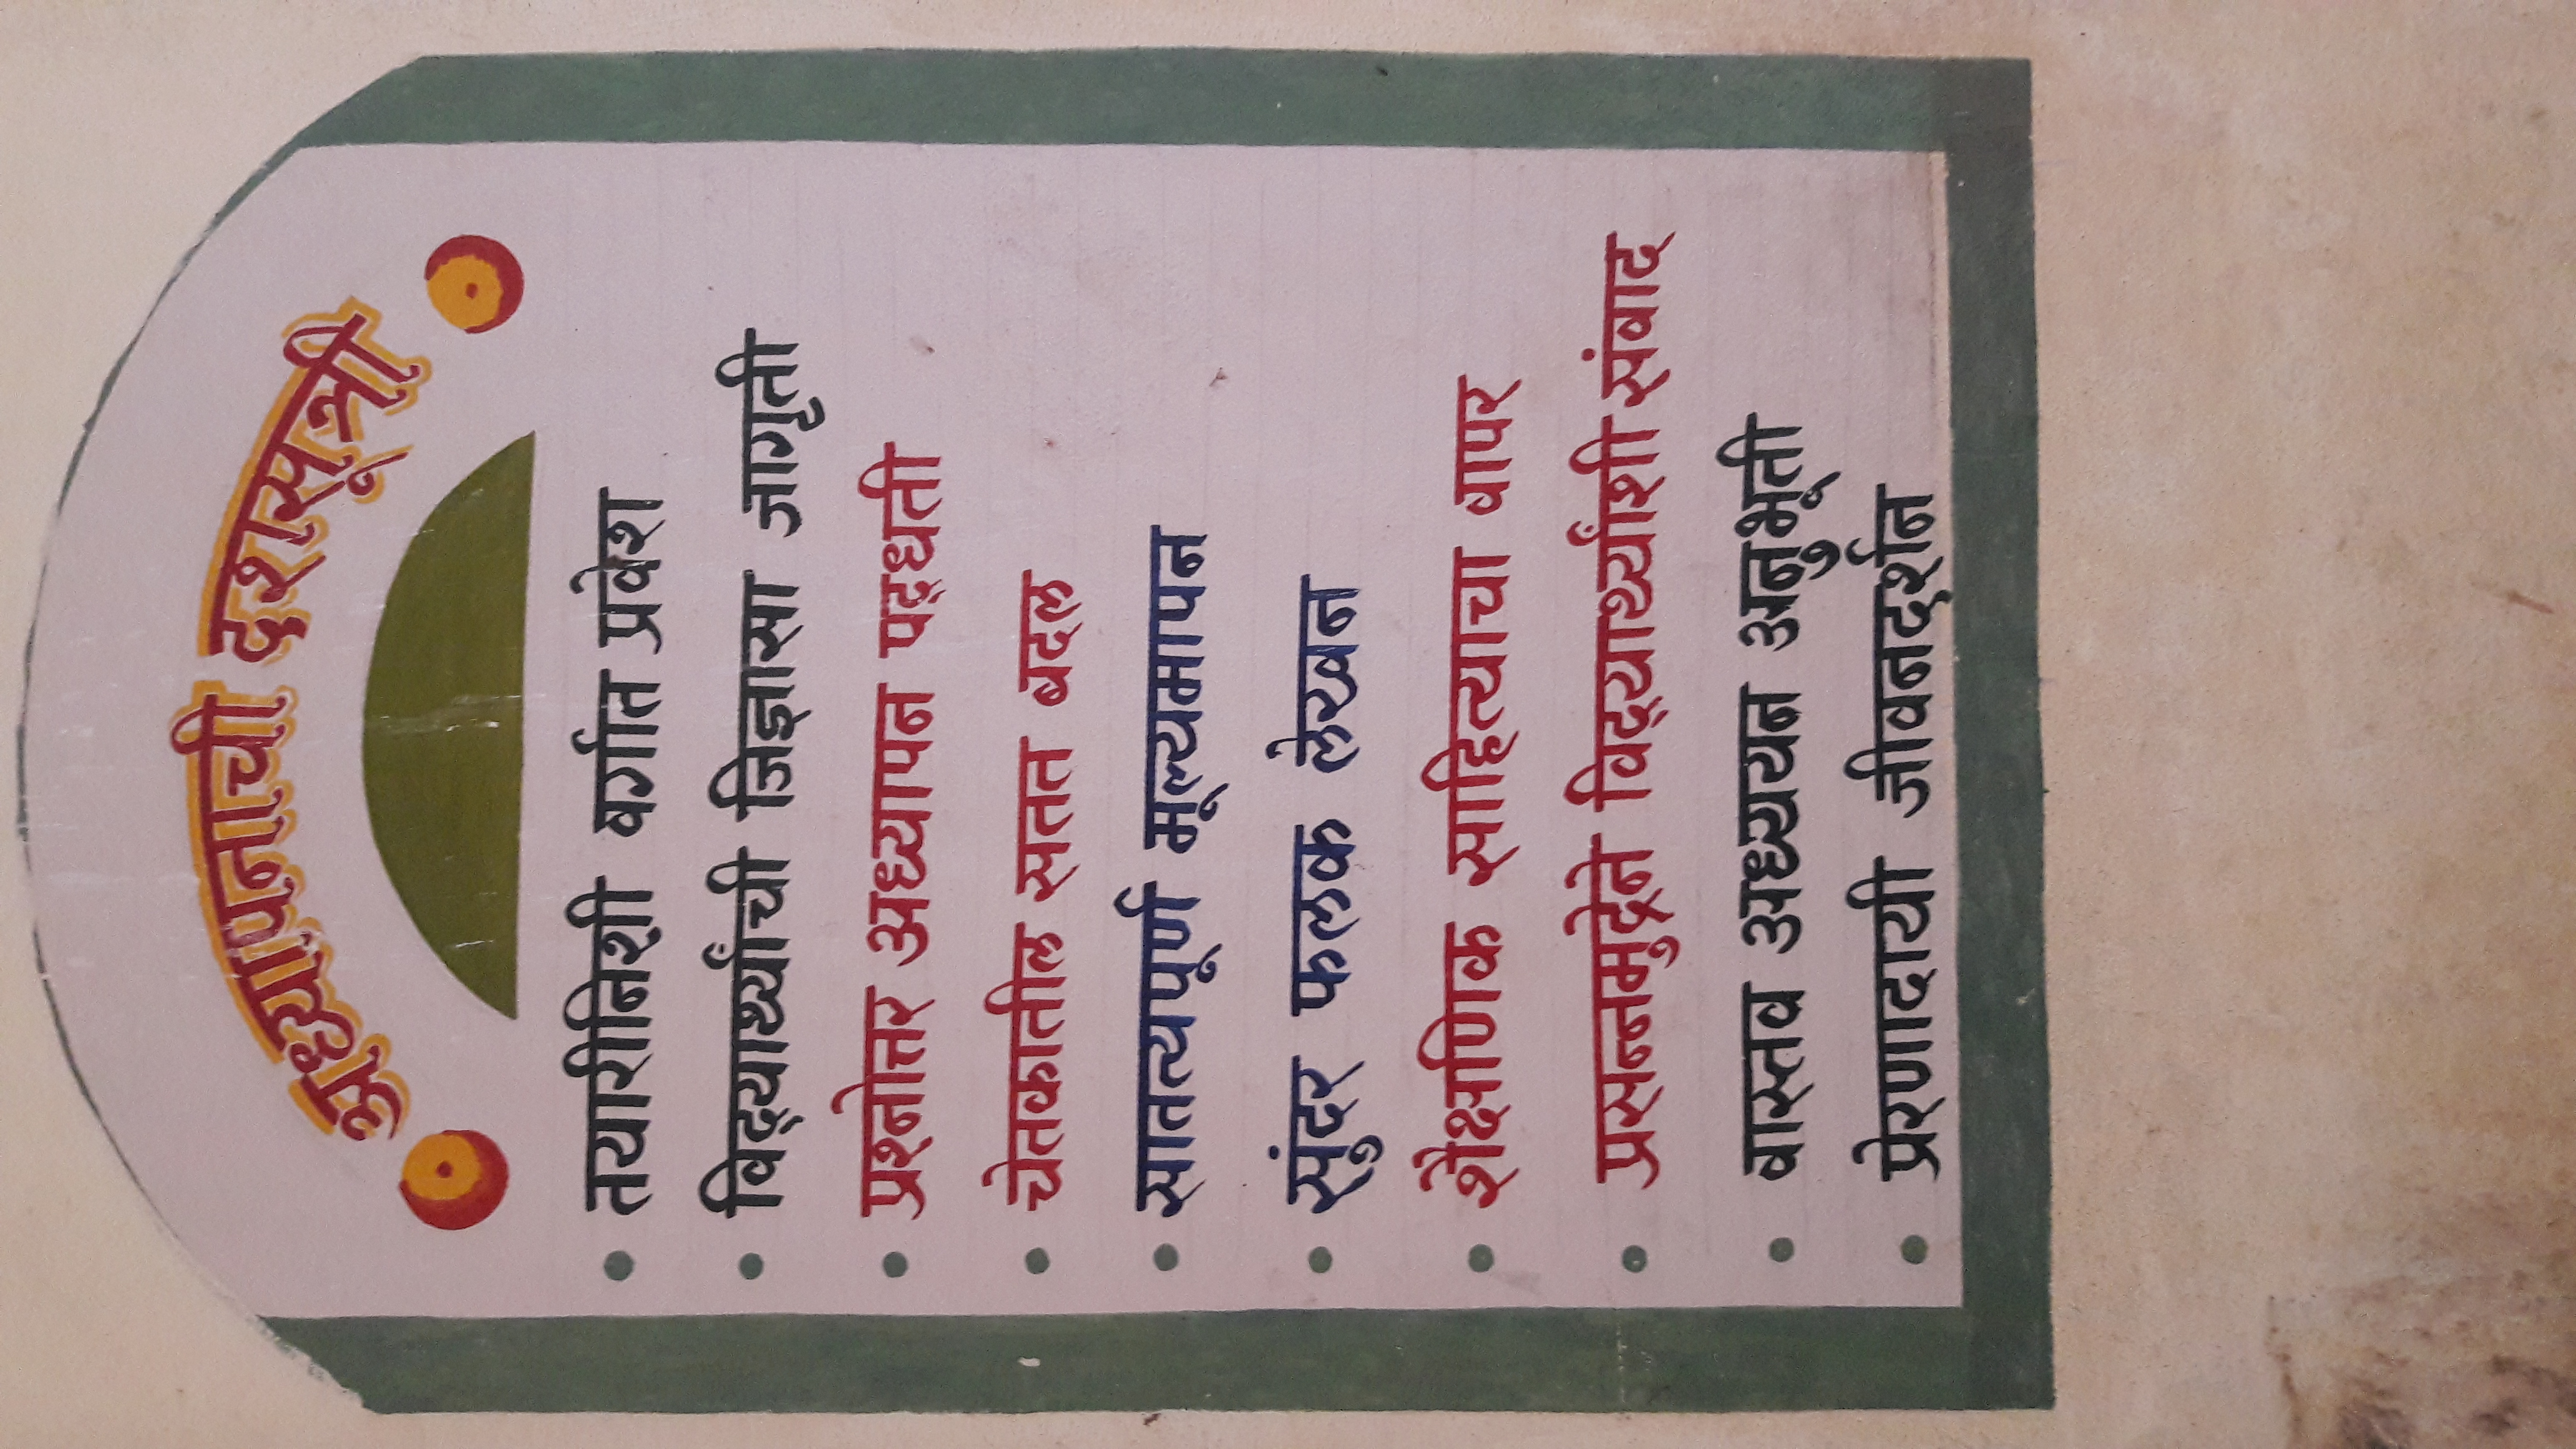 अध्यापनाची दशसूत्री
• तयारीनिशी वर्गात प्रवेश
• विद्‌यार्थ्यांची जिज्ञासा जागृती
• प्रश्नोत्तर अध्यापन पद्‌धती
• चेतकातील सतत बदल
• सातत्यपूर्ण मूल्यमापन
• सुंदर फलक लेखन
• शैक्षणिक साहित्याचा वापर
• प्रसन्नमुद्रेने विद्‌यार्थ्यांशी संवाद
• वास्तव अध्ययन अनुभूती
• प्रेरणादायी जीवनदर्शन